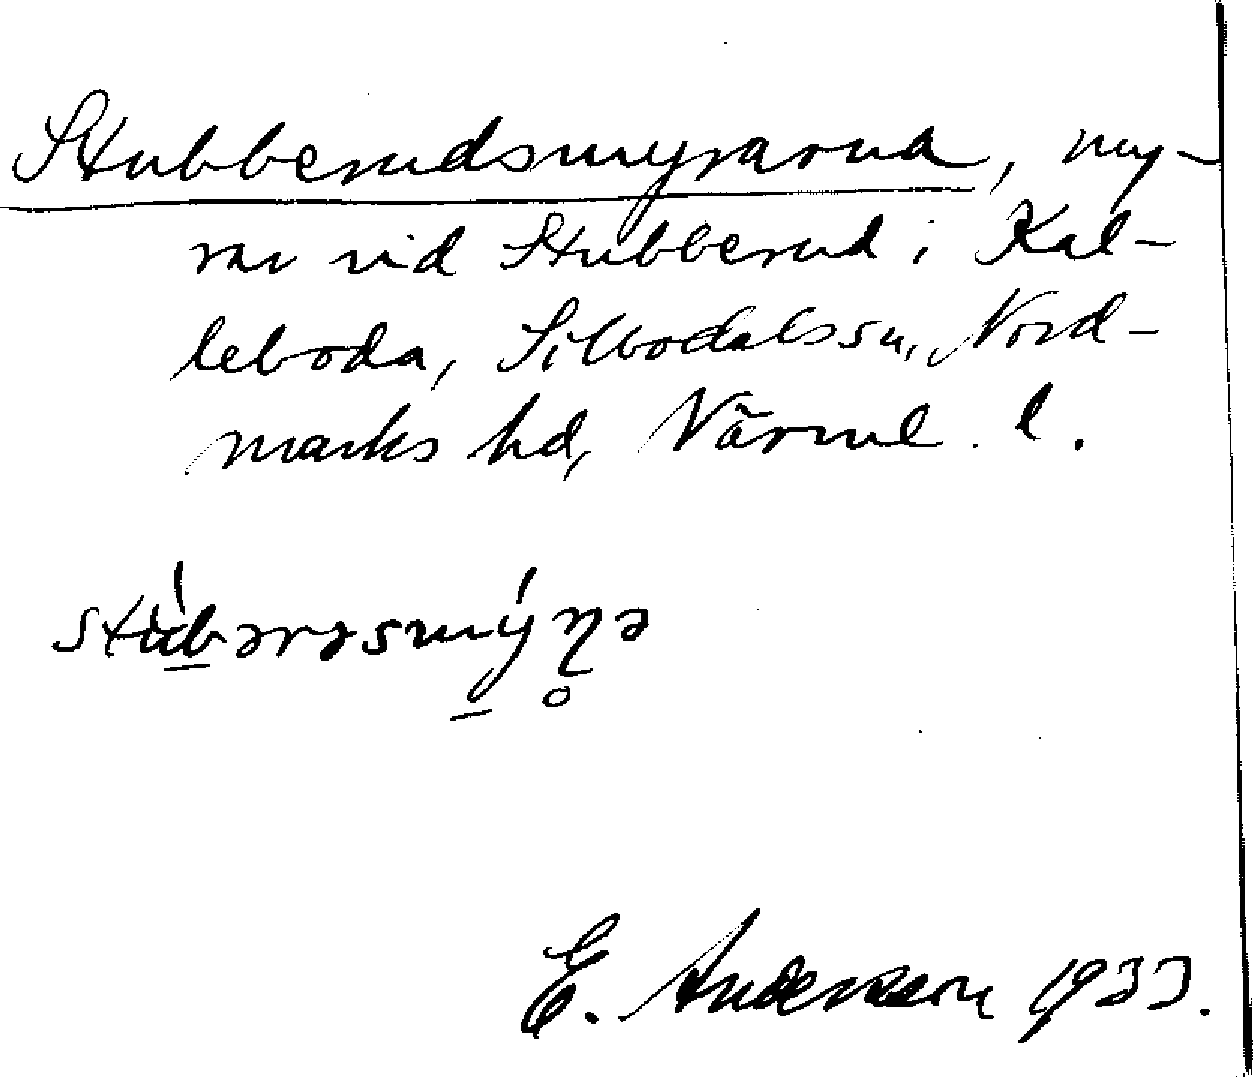 Stubberudsmyrarna, my-
rar vid Stubberud i Kal-
leboda, Silbodals sn, Nord-
marks hd, Värml. l.
E. Anderson 1933.